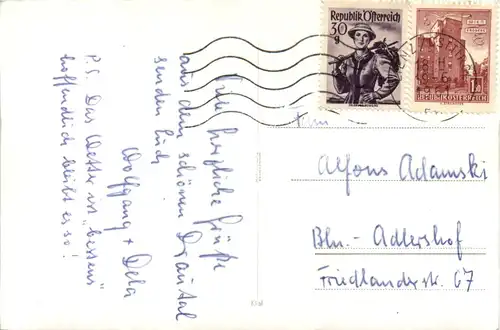 Viele herzliche Grüße
aus dem schönen Drautal
senden Euch
Wolfgang + Dela
P.S. Das Wetter ist "bestens"
hoffentlich bleibt es so!
Republik Österreich
30
g
REPUBLIK ÖSTERREICH
Alfons Adamski
Bln.- Adlershof
Friedlanderstr. 67